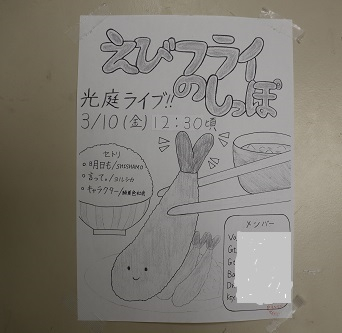 えびフライ
のしっぽ
光庭ライブ!!
3/10(金)12:30頃
セトリ
・明日も/SHISHAMO
・言って。/ヨルシカ
・キャラクター/緑黄色社会
メンバー
Vo
Gt
Gt
Ba
Dr
Key